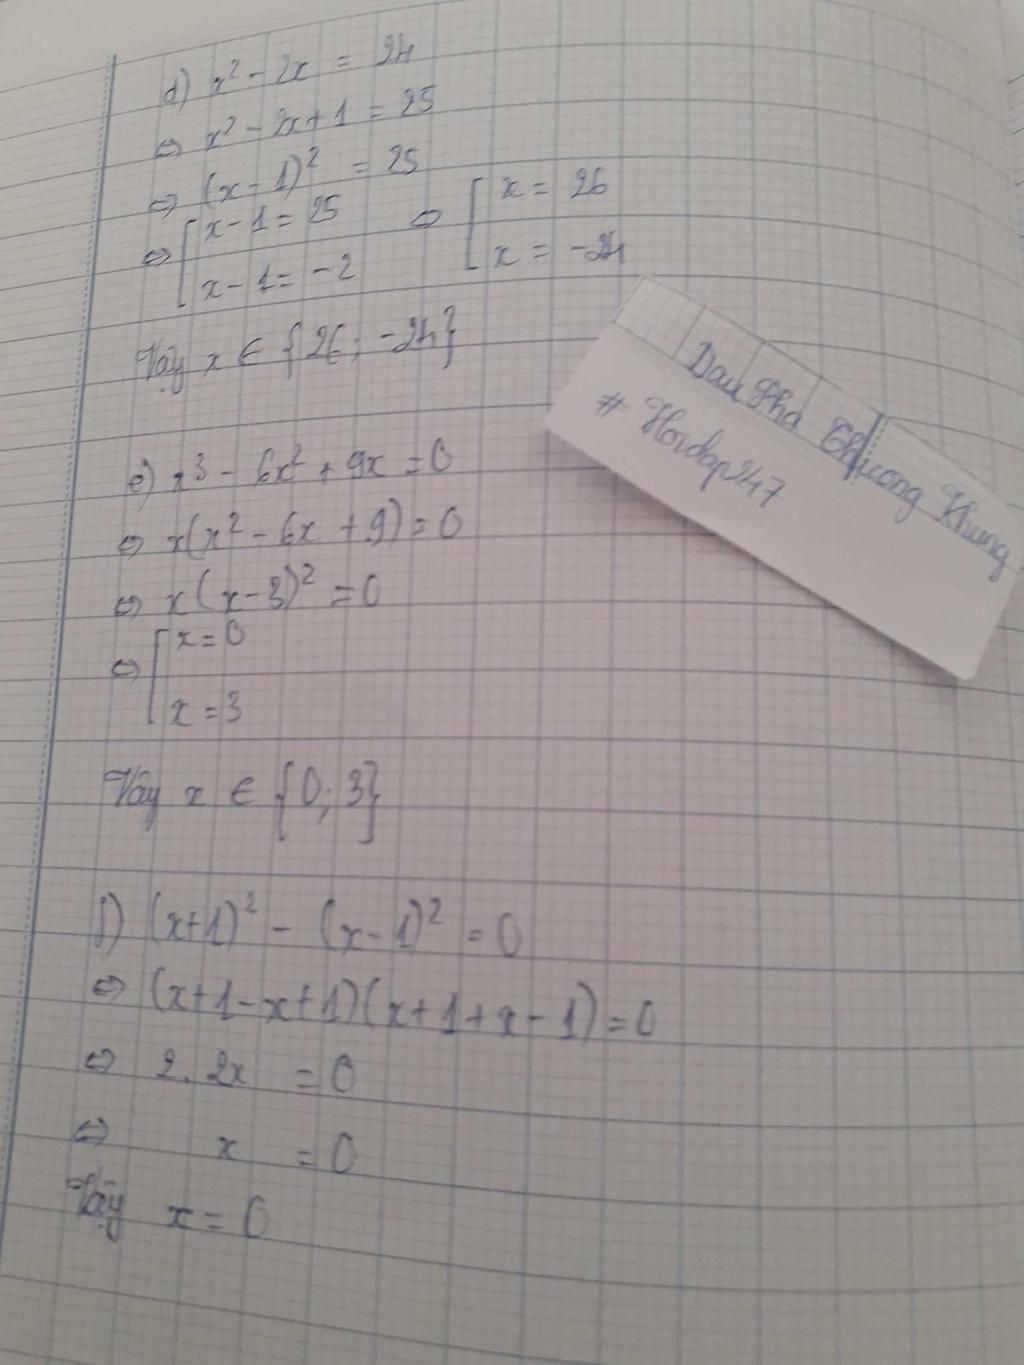 d) x² - 2x = 24
⇔ x² - 2x + 1 = 25
⇔ (x - 1)² = 25
⇔ [ x - 1 = 25 ⇔ [ x = 26
x - 1 = -2 x = -24
Vậy x ∈ {26; -24}
e) x³ - 6x² + 9x = 0
⇔ x(x² - 6x + 9) = 0
⇔ x(x - 3)² = 0
⇔ [ x = 0
x = 3
Vậy x ∈ {0; 3}
f) (x+1)² - (x-1)² = 0
⇔ (x+1-x+1)(x+1+x-1) = 0
⇔ 2. 2x = 0
⇔ x = 0
Vậy x = 0
Dau Pha Thuong Khung
# Hoidap247